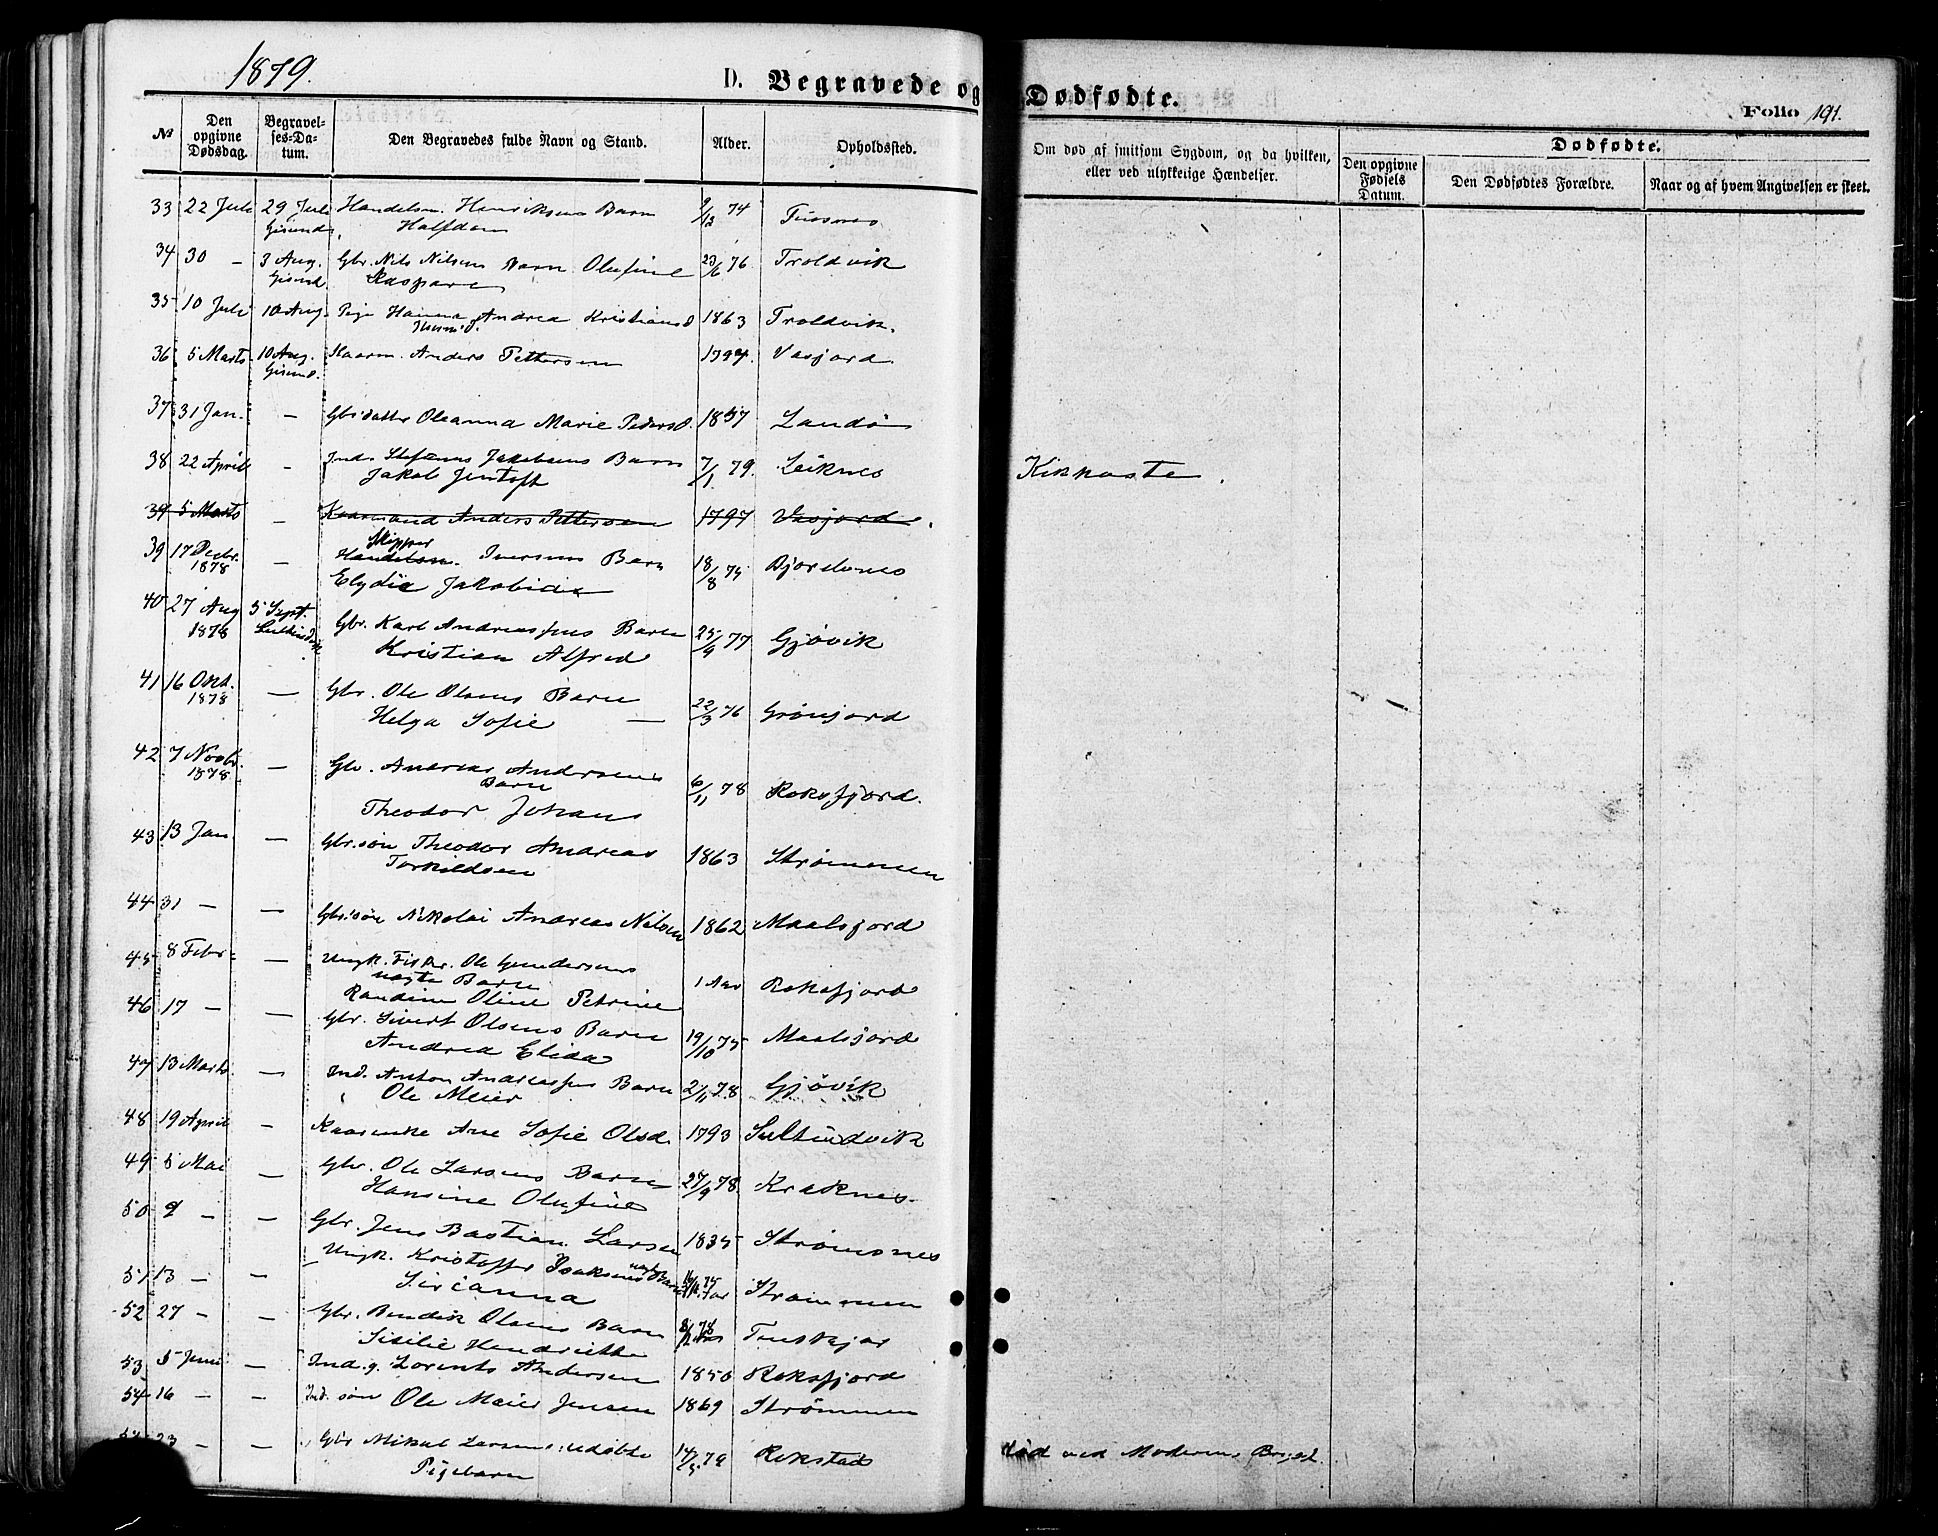 1879.
D. Begravede og Dødfødte.
Folio 191.
№
Den opgivne Dødsdag.
Begravel-ses-Da-tum.
Den Begravedes fulde Navn og Stand.
Alder.
Opholdssted.
Om død af smitsom Sygdom, og da hvilken, eller ved ulykkelige Hændelser.
Dødfødte.
Den opgivne Fødsels Datum.
Den Dødfødtes Forældre.
Naar og af hvem Angivelsen er skeet.
33 22 Juli 29 Juli Handelsm. Henriksens Barn 74
Gisund Halfdan
34 30 – 3 Aug. Gbr. Nils Nilsens Barn Olufine 23/6 76 Troldvik
Gisund Kaspara
35 10 Juli 10 Aug Pige Hanna Andrea Kristiansd 1863 Troldvik.
36 5 Marts 10 Aug. Kaarm. Anders Pettersen 1797. Vasjord
Gisund.
37 31 Jan. – Gbrdatter Oleanna Marie Pedersd. 1857 Landø
38 22 April – Ind. Jakobsens Barn 7/1 79. Leiknes Kikhoste.
Jakob Jentoft
39 5 Marts – Kaarmand Anders Pettersen 1797 Vasjord.
Skipper
39 17 Decbr. 1878 – Handelsm. Iversens Barn 18/8 75 Bjorelvnes
Elydie Jakobine
40 27 Aug 1878 5 Sept. Gbr. Karl Andreassens Barn 25/4 77 Gjøvik
Sultindvik Kristian Alfred
41 16 Okt. 1878 – Gbr. Ole Olsens Barn
Helga Sofie – 22/3 76 Grønjord
42 7 Novbr. 1878 – Gbr. Andreas Andersens
Barn 6/11 78 Roksfjord.
Theodor Johans
43 13 Jan – Gbr.søn Theodor Andreas 1863 Strømmen
Torkildsen
44 31 – – Gbr.søn Nikolai Andreas Nilsen 1862 Maalsjord
45 8 Febr – Ungk. Fisker. Ole Gundersens
uægte Barn 1 Aar Roksfjord
Randine Oline Petrine
46 17 – – Gbr. Sivert Olsens Barn 19/10 75 Maalsjord
Andrea Elida
47 13 Marts – Ind. Anton Andreassens Barn 2/11 78 Gjøvik
Ole Meier
48 19 April – Kaarenke Ane Sofie Olsd. 1793 Sultindvik
49 5 Mai – Gbr. Ole Larsens Barn 27/9 78. Kraknes.
Hansine Olufine
50 9 – – Gbr. Jens Bastian Larsen 1835 Strømsnes
51 13 – – Ungk. Kristoffer Isaksens uægte Barn Strømmen
Sirianna
52 27 – Gbr. Bendik Olsens Barn Tenskjær
Sisilie Hendriette
53 5 Juni – Ind.g. Lorents Andersen 1850 Roksfjord
54 16 – – Ind. søn Ole Meier Jensen 1869 Strømmen
23 – – Gbr Mikal Larsens udøbte 14/5 79 Rokstad død ved Moderens Bryst.
Pigebarn